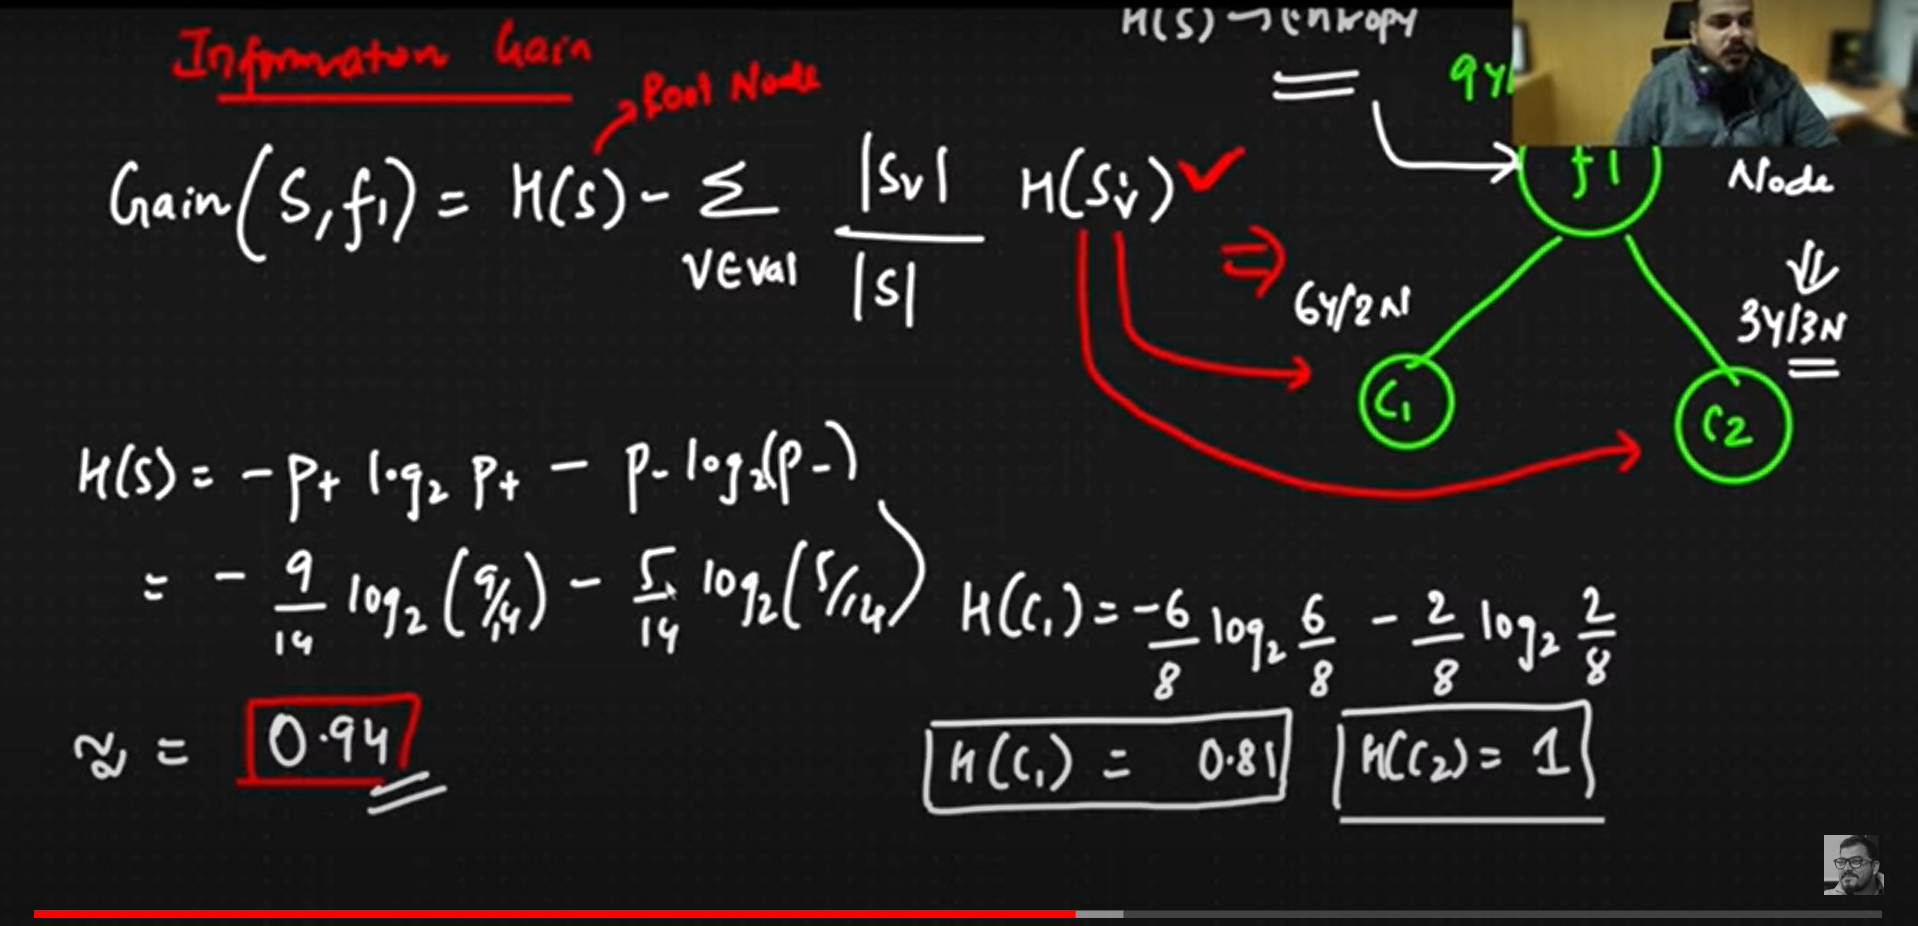 Information Gain
H(S) → Entropy
Root Node
9Y/
Gain(S, f1) = H(S) - Σ |Sv| H(Sv) ✓
v∈val |S|
f1
Node
⇒
6Y/2N
3Y/3N
C1
C2
H(S) = -p+ log2 p+ - p- log2(p-)
= - 9/14 log2 (9/14) - 5/14 log2(5/14)
H(C1) = -6/8 log2 6/8 - 2/8 log2 2/8
≈ = 0.94
H(C1) = 0.81
H(C2) = 1